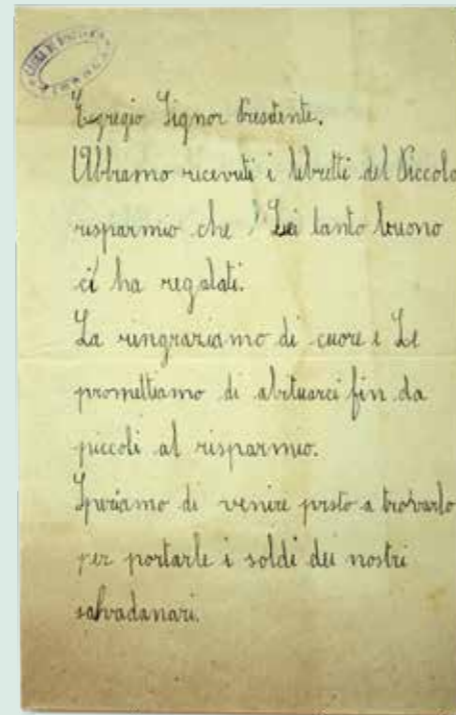 CASSA DI
Egregio Signor Presidente.
Abbiamo ricevuti i libretti del Piccolo
risparmio che Lei tanto buono
ci ha regalati.
La ringraziamo di cuore e Le
promettiamo di abituarci fin da
piccoli al risparmio.
Speriamo di venire presto a trovarlo
per portarle i soldi dei nostri
salvadanari.